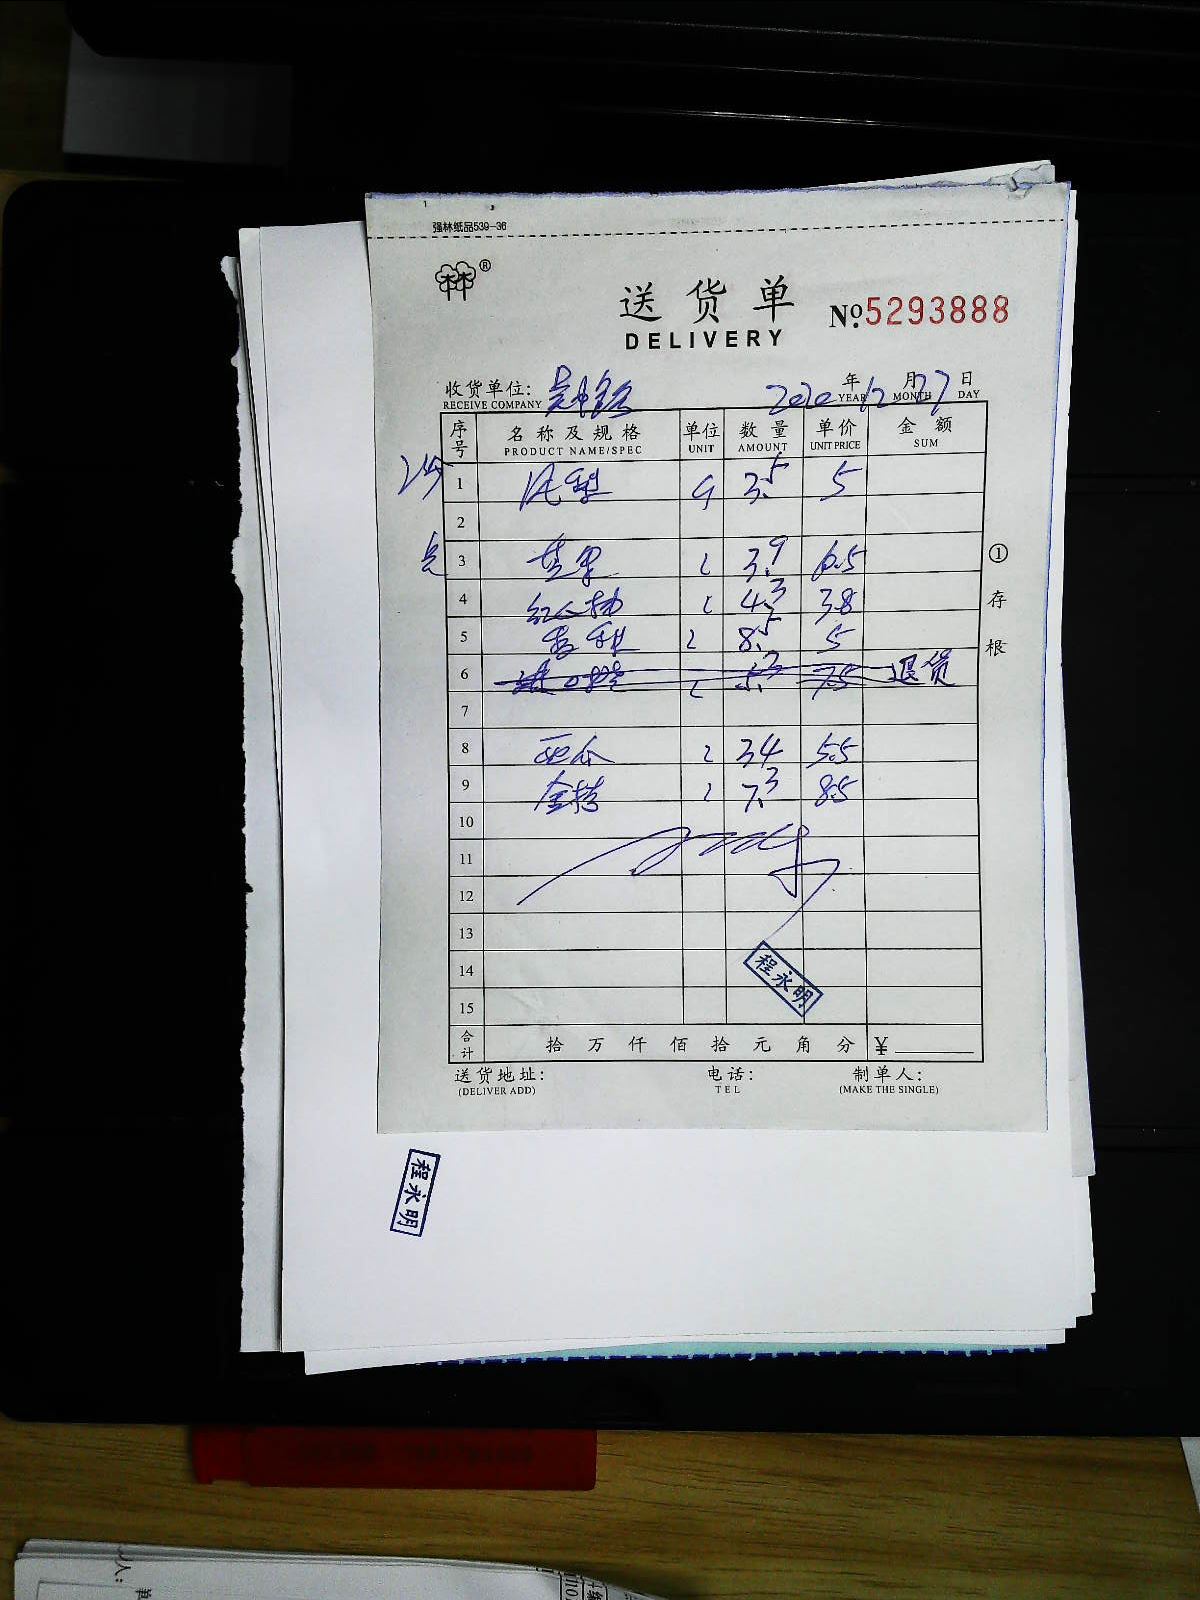 强林纸品539-36
林®
送货单 No.5293888
DELIVERY
收货单位: 2020年12月27日
RECEIVE COMPANY YEAR MONTH DAY
序号 名称及规格 单位 数量 单价 金额
PRODUCT NAME/SPEC UNIT AMOUNT UNIT PRICE SUM
1 3.5 5
2
3 3.9 6.5
4 红心柚 4.3 3.8
5 香梨 8.5 5
6 7.5 退货
7
8 西瓜 34 5.5
9 金桔 7.3 8.5
10
11
12
13
14
15
①存根
程永明
合计 拾万仟佰拾元角分 ¥
送货地址: 电话: 制单人:
(DELIVER ADD) TEL (MAKE THE SINGLE)
程永明